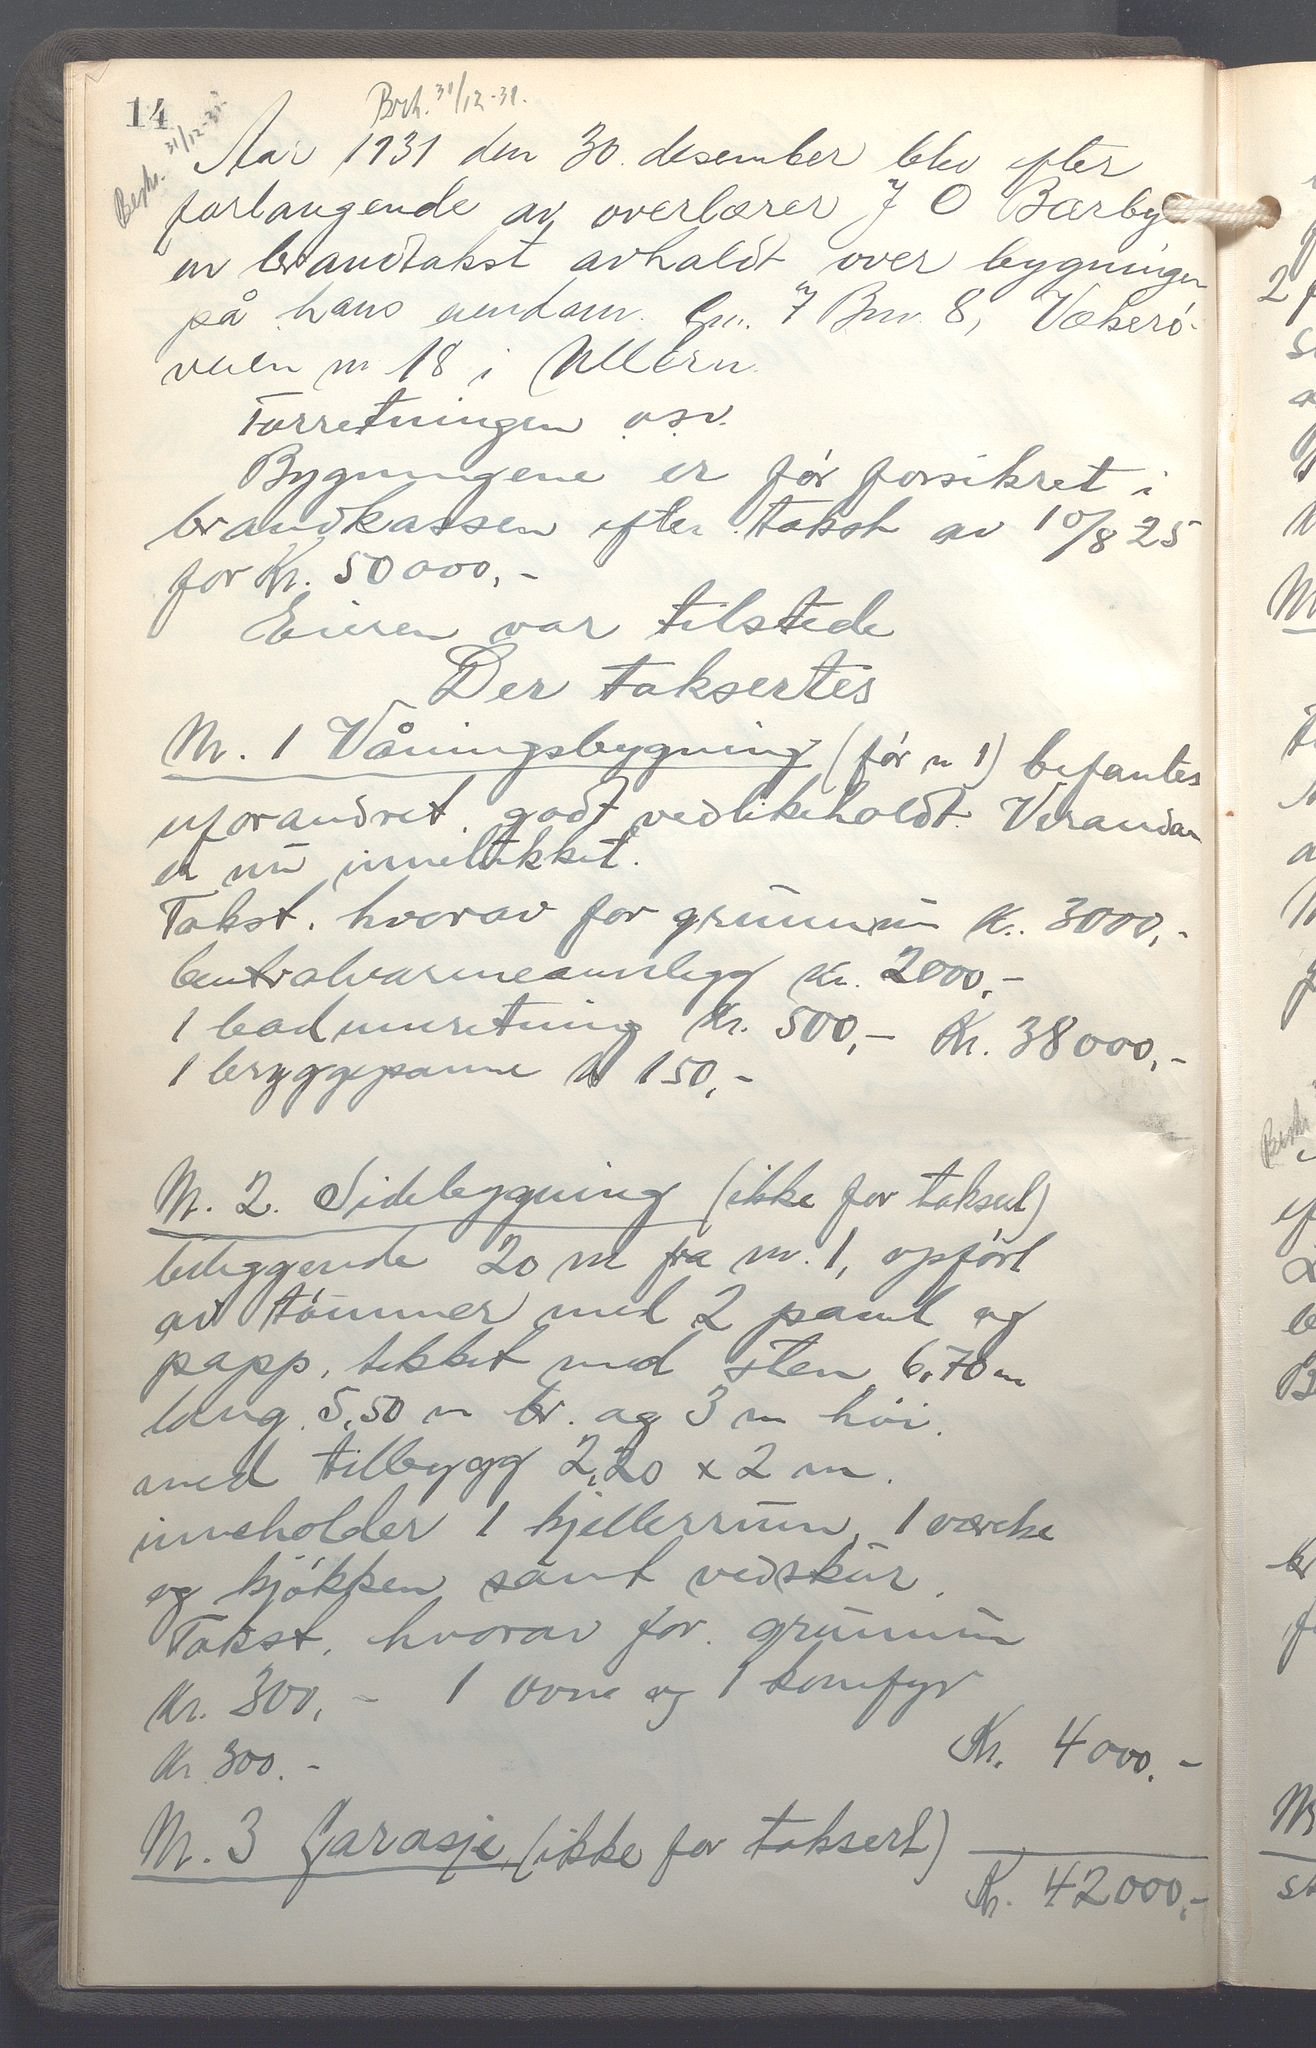 14
Besk. 31/12-31.
Besk. 31/12-31
Aar 1931 den 30. desember blev efter
forlangende av overlærer J O Bærby
en brandtakst avholdt over bygningen
på hans eiendom Gn. 7 Bnr. 8, Vækerö-
veien nr 18 i Ullern.
Forretningen osv.
Bygningene er før forsikret i
brandkassen efter takst av 10/8 25
for Kr. 50000,-
Eieren var tilstede
Der taksertes
Nr. 1 Våningsbygning (før nr 1) befantes
uforandret, godt vedlikeholdt. Verandaen
er nu innelukket.
Takst, hvorav for grunnmur Kr. 3000,-
Centralvarmeannlegg Kr. 2000,-
1 badinnretning Kr. 500,- Kr. 38000,-
1 bryggepanne Kr 150,-
Nr. 2. Sidebygning (ikke før taksert)
beliggende 20 m fra nr. 1, opført
av tömmer med 2 panel og
papp, tekket med sten 6,70 m
lang, 5,50 m br. og 3 m høi.
med tilbygg 2,20 x 2 m.
inneholder 1 kjellerrum, 1 værelse
og kjøkken samt vedskur.
Takst, hvorav for grunnmur
Kr. 300,- 1 ovne og 1 komfyr
Kr 300.- Kr. 4000.-
Nr. 3 Garasje (ikke før taksert)
Kr. 42000,-